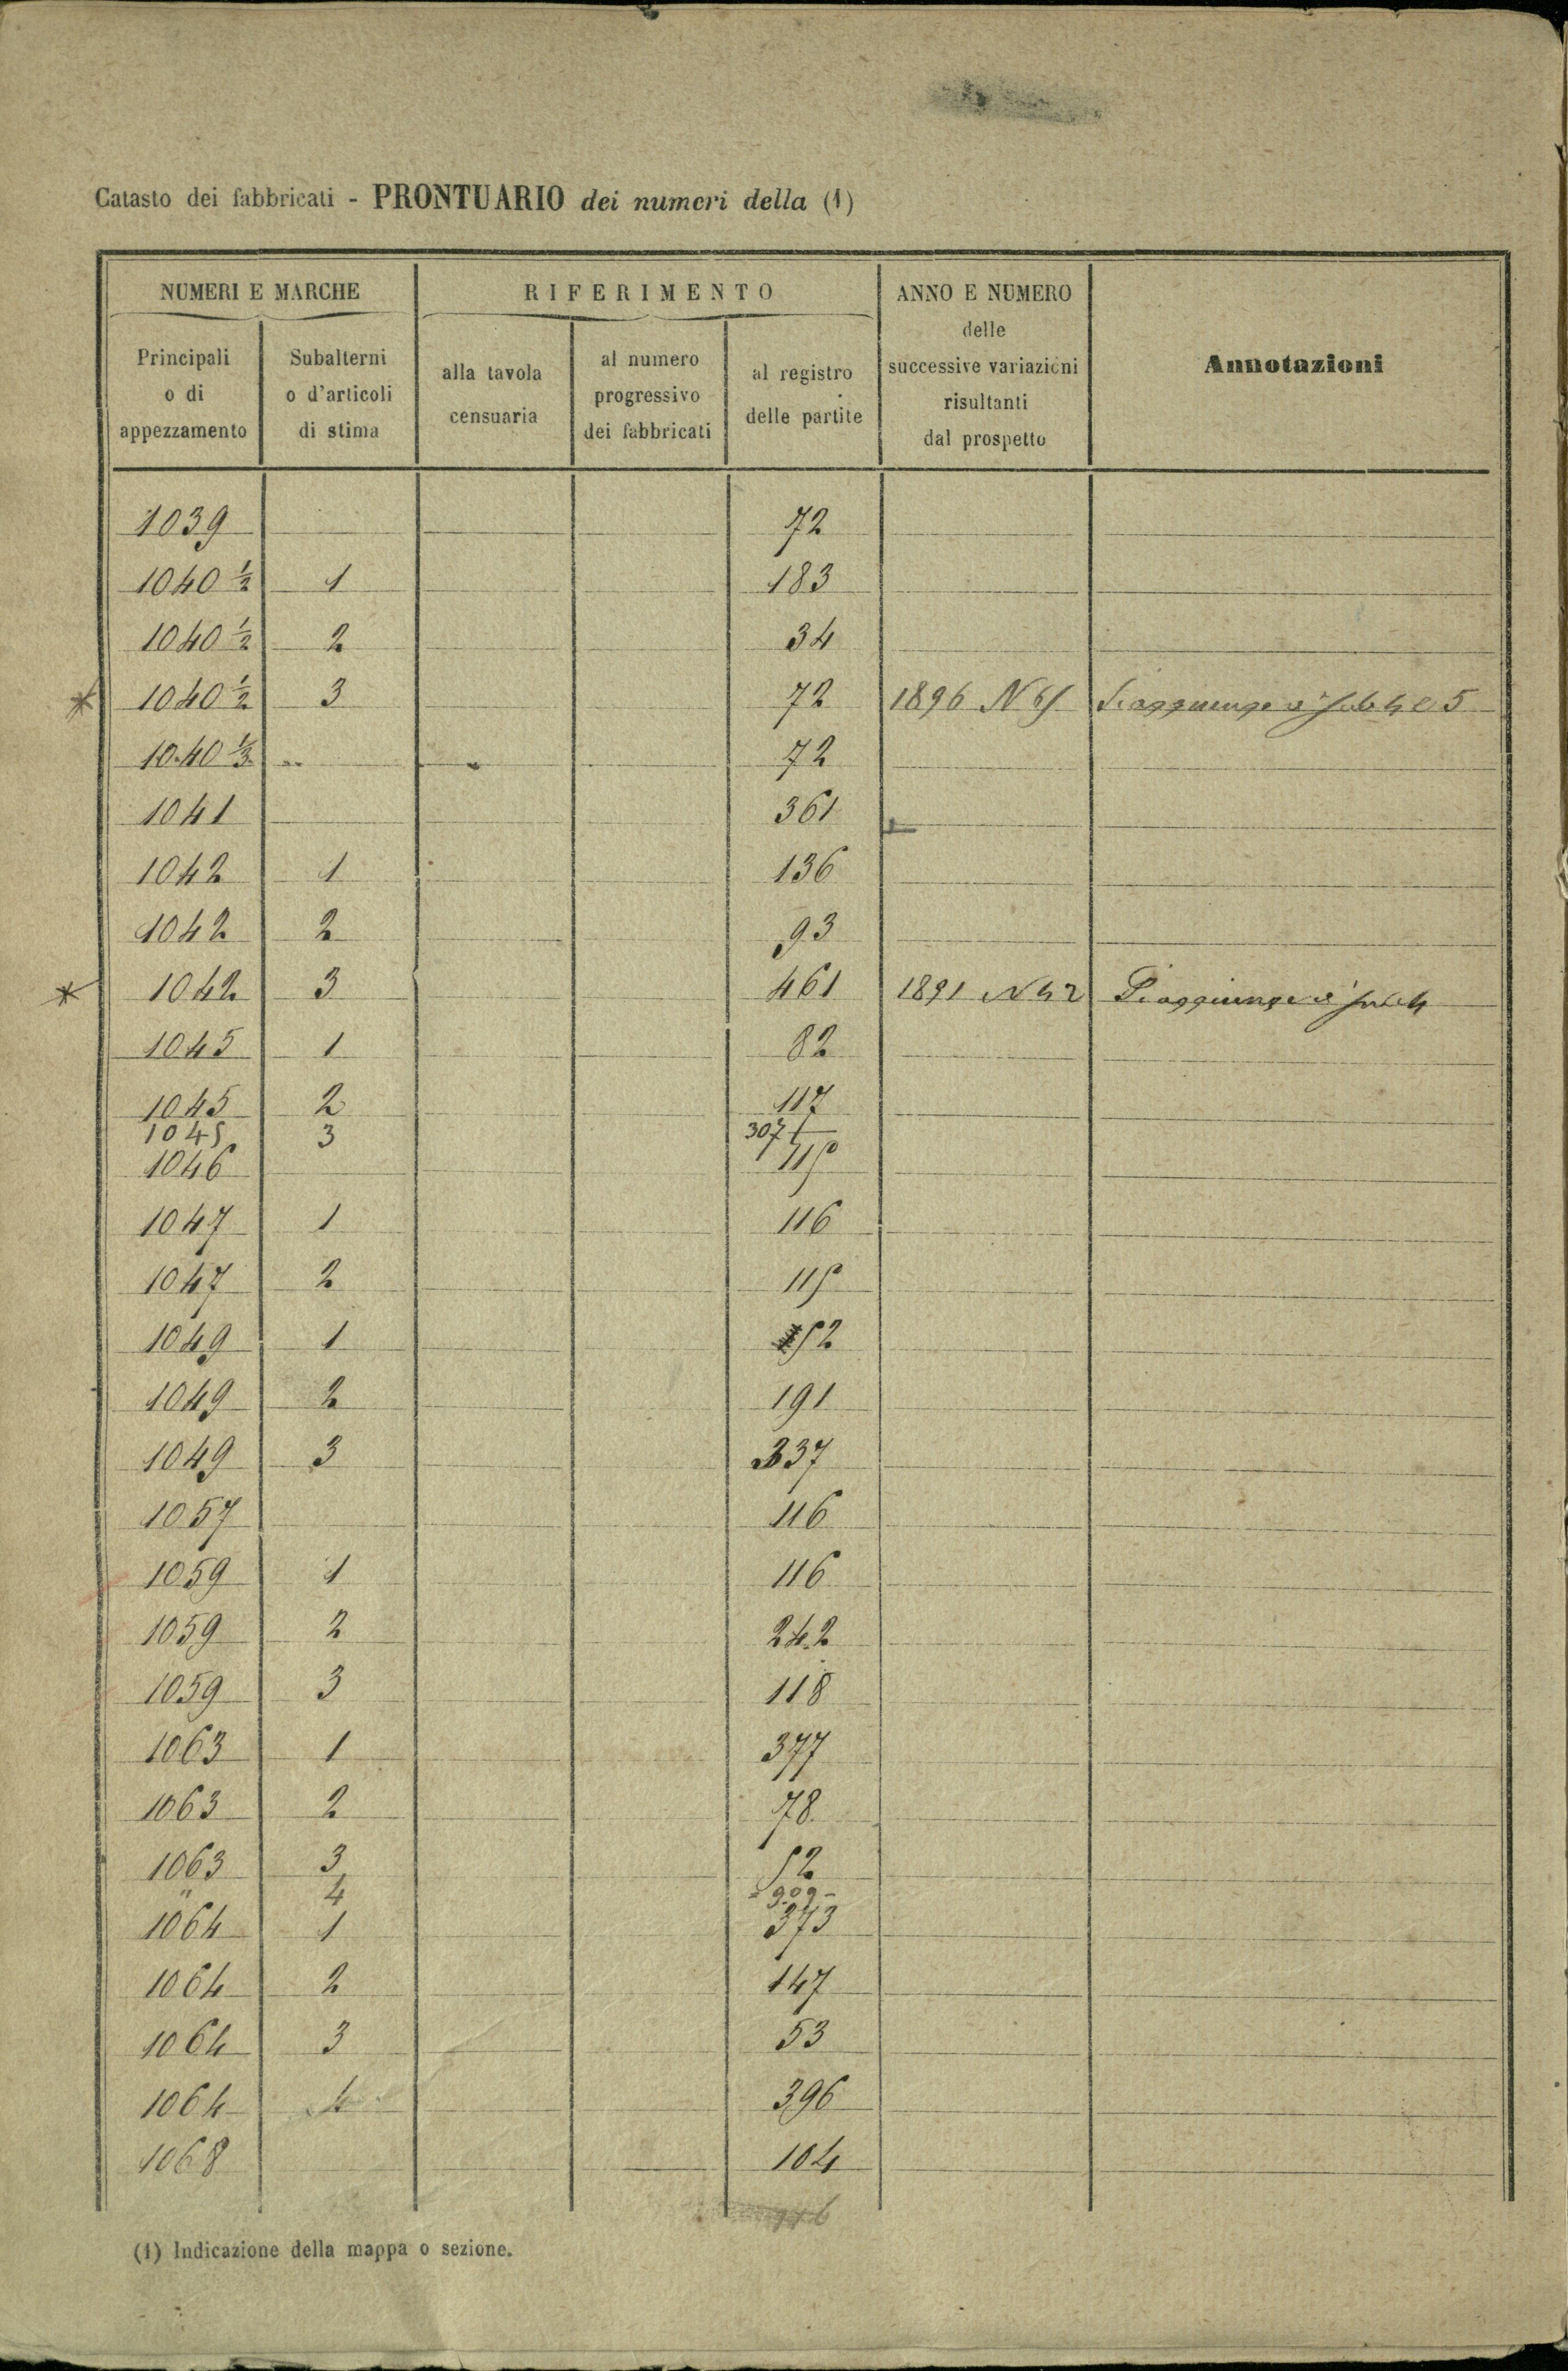 Catasto dei fabbricati - PRONTUARIO dei numeri della (1)
NUMERI E MARCHE
RIFERIMENTO
ANNO E NUMERO
delle
successive variazioni
risultanti
dal prospetto
Annotazioni
Principali
o di
appezzamento
Subalterni
o d'articoli
di stima
alla tavola
censuaria
al numero
progressivo
dei fabbricati
al registro
delle partite
1039 72
1040 ½ 1 183
1040 ½ 2 34
* 1040 ½ 3 72 1896 N Si aggiunge i sub 4 e 5
1040 ⅓ 72
1041 361
1042 1 136
1042 2 93
* 1042 3 461 1891 N 42 Si aggiunge il sub 4
1045 1 82
1045 2 117
1045 3 307
1046 115
1047 1 116
1047 2 115
1049 1 52
1049 2 191
1049 3 337
1057 116
1059 1 116
1059 2 242
1059 3 118
1063 1 377
1063 2 78
1063 3 52
" 4 = 909 -
1064 1 373
1064 2 147
1064 3 53
1064 4 396
1068 104
(1) Indicazione della mappa o sezione.